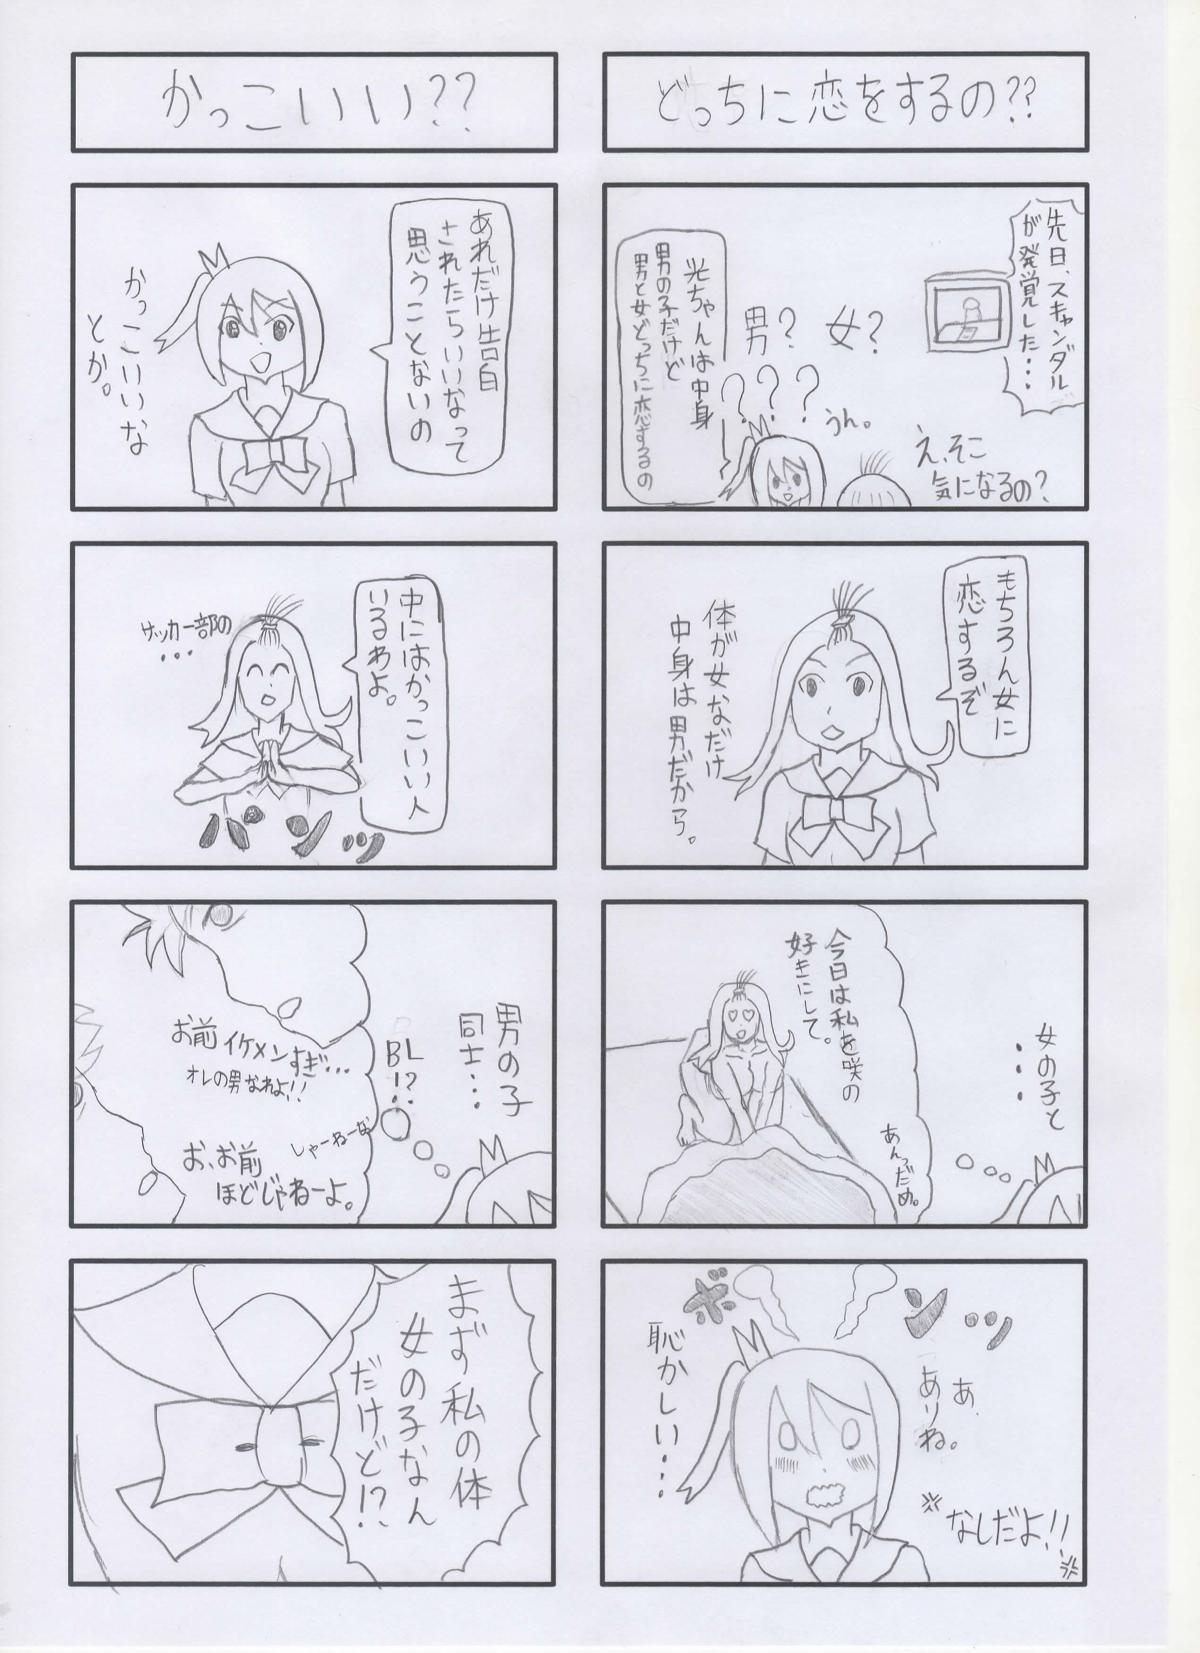 どっちに恋をするの??
先日、スキャンダル
が発覚した・・・
え、そこ
気になるの?
うん。
女?
男?
???
光ちゃんは中身
男の子だけど
男と女どっちに恋するの
もちろん女に
恋するぞ
体が女なだけ
中身は男だから。
女の子と
・・・
今日は私を咲の
好きにして。
あんっだめ。
ボンッ
あ、
ありね。
なしだよ!!
恥かしい・・・
かっこいい??
あれだけ告白
されたらいいなって
思うことないの
かっこいいな
とか。
中にはかっこいい人
いるわよ。
サッカー部の
・・・
パンッ
男の子
同士・・・
BL!?
お前イケメンすぎ・・・
オレの男なれよ!!
しゃーねーな
お、お前
ほどじゃねーよ。
まず私の体
女の子なん
だけど!?